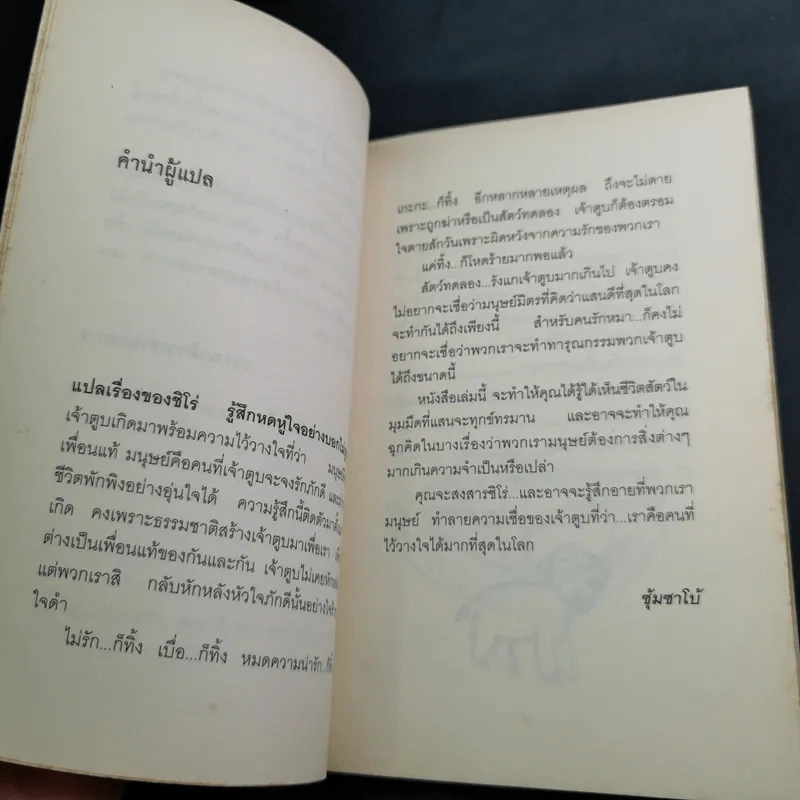 คำนำผู้แปล
แปลเรื่องของชิโร่ รู้สึกหดหู่ใจอย่างบอกไม่
เจ้าตูบเกิดมาพร้อมความไว้วางใจที่ว่า
เพื่อนแท้ มนุษย์คือคนที่เจ้าตูบจะจงรักภักดี
ชีวิตพักพิงอย่างอุ่นใจได้ ความรู้สึกนี้ติดตัวมา
เกิด คงเพราะธรรมชาติสร้างเจ้าตูบมาเพื่อเรา
ต่างเป็นเพื่อนแท้ของกันและกัน เจ้าตูบไม่เคยหัก
แต่พวกเราสิ กลับหักหลังหัวใจภักดีนั้นอย่าง
ใจดำ
ไม่รัก...ก็ทิ้ง เบื่อ...ก็ทิ้ง หมดความน่ารัก...
เกะกะ...ก็ทิ้ง อีกหลากหลายเหตุผล ถึงจะไม่ตาย
เพราะถูกฆ่าหรือเป็นสัตว์ทดลอง เจ้าตูบก็ต้องตรอม
ใจตายสักวันเพราะผิดหวังจากความรักของพวกเรา
แค่ทิ้ง...ก็โหดร้ายมากพอแล้ว
สัตว์ทดลอง...รังแกเจ้าตูบมากเกินไป เจ้าตูบคง
ไม่อยากจะเชื่อว่ามนุษย์มิตรที่คิดว่าแสนดีที่สุดในโลก
จะทำกันได้ถึงเพียงนี้ สำหรับคนรักหมา...ก็คงไม่
อยากจะเชื่อว่าพวกเราจะทำทารุณกรรมพวกเจ้าตูบ
ได้ถึงขนาดนี้
หนังสือเล่มนี้ จะทำให้คุณได้รู้ได้เห็นชีวิตสัตว์ใน
มุมมืดที่แสนจะทุกข์ทรมาน และอาจจะทำให้คุณ
ฉุกคิดในบางเรื่องว่าพวกเรามนุษย์ต้องการสิ่งต่างๆ
มากเกินความจำเป็นหรือเปล่า
คุณจะสงสารชิโร่...และอาจจะรู้สึกอายที่พวกเรา
มนุษย์ ทำลายความเชื่อของเจ้าตูบที่ว่า...เราคือคนที่
ไว้วางใจได้มากที่สุดในโลก
ซุ้มซาโบ้